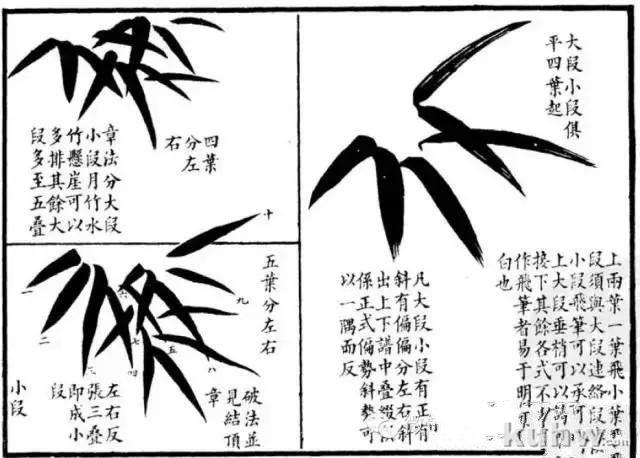 大段小段俱
平四葉起
上兩葉一葉飛小葉
段須與大段連絡段
小段飛筆可以承可
上大段垂梢可以
接下其餘各式不
作飛筆者易于明
白也
凡大段小段有正有
斜有偏偏分左右斜
出上下譜中叠
係正式偏勢斜勢可
以一隅而反
四葉
分左
右
章法分大段
小段月竹水
竹懸崖可以
多排其餘大
段多至五叠
五葉分左右
十
九
八
五
七
六
三
二
一
破法並
見結頂
章
左右反
張三叠
即成小
段
小段